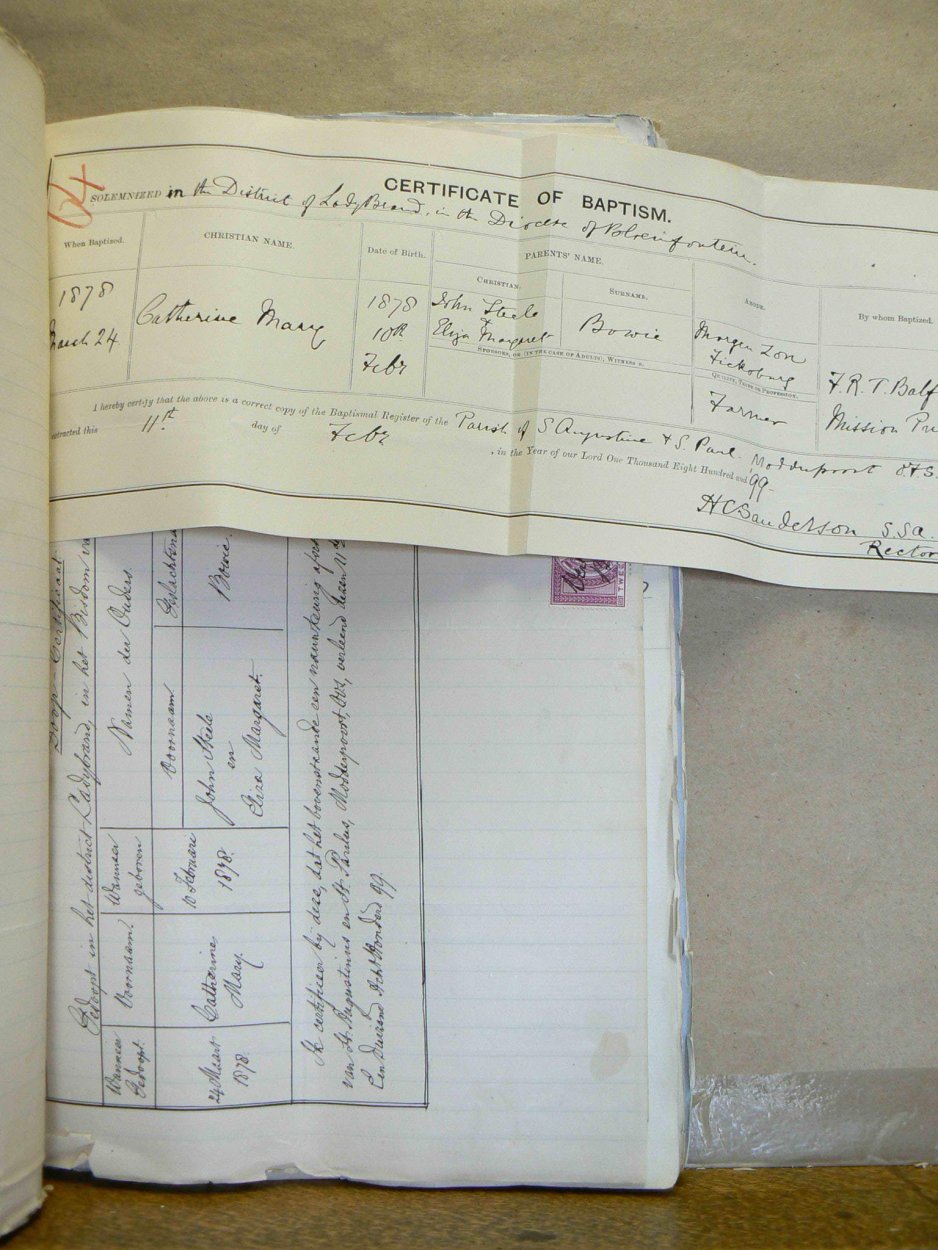 64
CERTIFICATE OF BAPTISM.
SOLEMNIZED in the District of LadyBrand, in the Diocese of Bloemfontein.
When Baptized.
CHRISTIAN NAME.
Date of Birth.
PARENTS' NAME.
CHRISTIAN.
SURNAME.
ABODE.
By whom Baptized.
1878
March 24
Catherine Mary
1878
10th
Febr
John Steele
&
Eliza Margaret
Bowie
Morgen Zon
Ficksburg
SPONSORS, OR (IN THE CASE OF ADULTS), WITNESSES.
QUALITY, TRADE OR PROFESSION.
Farmer
F.R.T. Balf
Mission Pr
I hereby certify that the above is a correct copy of the Baptismal Register of the Parish of S Augustine & S. Paul Modderpoort O.F.S.
extracted this 11th day of Febr, in the Year of our Lord One Thousand Eight Hundred and 99
HC Sanderson S.S.A.
Rector
Doop-Certificaat
Gedoopt in het district Ladybrand, in het Bisdom va
Wanneer Gedoopt.
Voornaam.
Wanneer geboren
Namen der Ouders.
Voornaam
Geslachtsna
24 Maart
1878.
Catherine
Mary.
10 Februari
1878.
John Steele
en
Eliza Margaret.
Bowie.
Ik certificeer by deze, dat het bovenstaande een nauwkeurig afsch
van St. Augustinus en St. Paulus, Modderpoort, OVS, verleend dezen 11de
Een Duizend Acht Honderd 99.
TWE